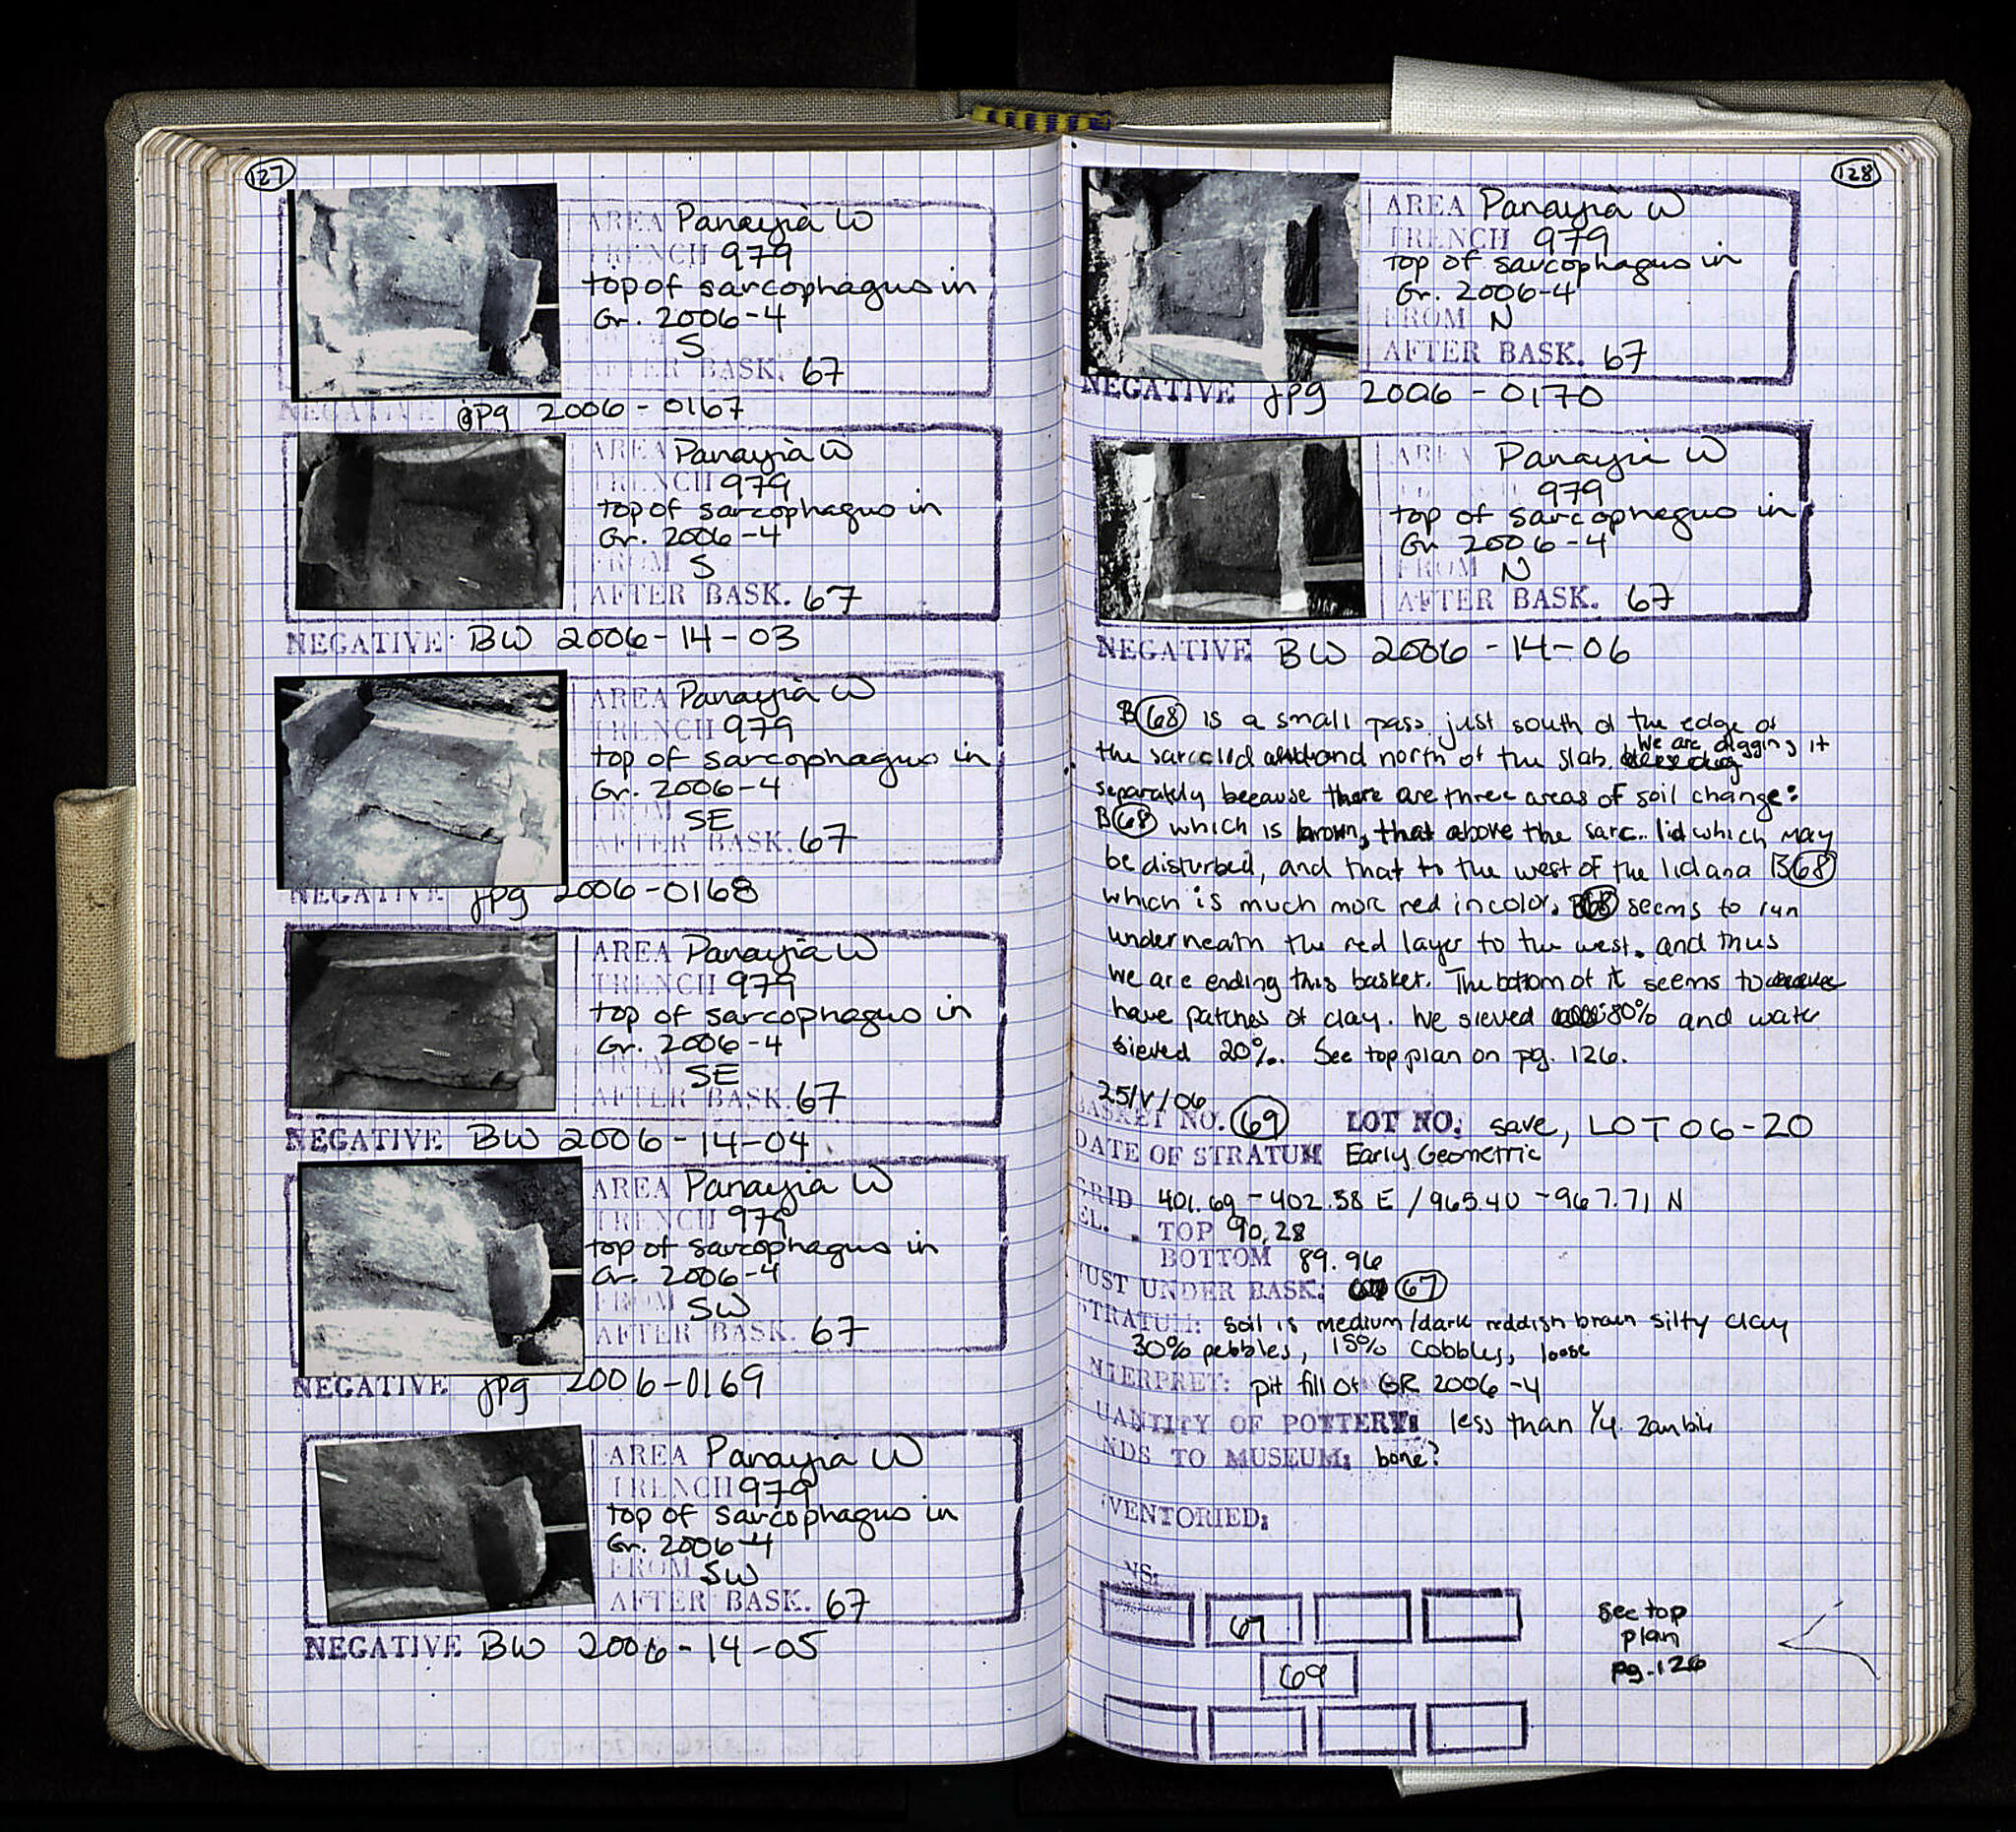 127
AREA Panayia W
TRENCH 979
top of sarcophagus in
Gr. 2006-4
FROM S
AFTER BASK. 67
NEGATIVE jpg 2006-0167
AREA Panayia W
TRENCH 979
top of sarcophagus in
Gr. 2006-4
FROM S
AFTER BASK. 67
NEGATIVE BW 2006-14-03
AREA Panayia W
TRENCH 979
top of sarcophagus in
Gr. 2006-4
FROM SE
AFTER BASK. 67
NEGATIVE jpg 2006-0168
AREA Panayia W
TRENCH 979
top of sarcophagus in
Gr. 2006-4
FROM SE
AFTER BASK. 67
NEGATIVE BW 2006-14-04
AREA Panayia W
TRENCH 979
top of sarcophagus in
Gr. 2006-4
FROM SW
AFTER BASK. 67
NEGATIVE jpg 2006-0169
AREA Panayia W
TRENCH 979
top of sarcophagus in
Gr. 2006-4
FROM SW
AFTER BASK. 67
NEGATIVE BW 2006-14-05
128
AREA Panayia W
TRENCH 979
top of sarcophagus in
Gr. 2006-4
FROM N
AFTER BASK. 67
NEGATIVE jpg 2006-0170
AREA Panayia W
979
top of sarcophagus in
Gr 2006-4
FROM N
AFTER BASK. 67
NEGATIVE BW 2006-14-06
B(68) is a small pass just south of the edge of
the sarc. lid and north of the slab. We are digging it
separately because there are three areas of soil change:
B(68) which is brown, that above the sarc. lid which may
be disturbed, and that to the west of the lid and B(68)
which is much more red in color. B(68) seems to run
underneath the red layer to the west. and thus
we are ending this basket. The bottom of it seems to
have patches of clay. We sieved 80% and water
sieved 20%. See top plan on pg. 126.
25/V/06
BASKET NO. (69) LOT NO: save, LOT 06-20
DATE OF STRATUM Early Geometric
GRID 401.69-402.58 E / 965.40-967.71 N
EL. TOP 90.28
BOTTOM 89.96
JUST UNDER BASK: (67)
STRATUM: soil is medium/dark reddish brown silty clay
30% pebbles, 15% cobbles, loose
INTERPRET: pit fill of GR 2006-4
QUANTITY OF POTTERY: less than 1/4 zambili
NDS TO MUSEUM: bone?
VENTORIED:
NS:
67
69
see top
plan
pg. 126